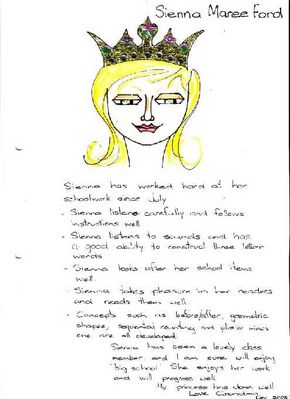 Sienna Maree Ford
Sienna has worked hard at her
schoolwork since July
- Sienna listens carefully and follows
instructions well
- Sienna listens to sounds and has
a good ability to construct three letter
words
- Sienna looks after her school items
well.
- Sienna takes pleasure in her readers
and reads them well
- Concepts such as before/after, geometric
shapes, sequential counting and plus or minus
one are all developed.
Sienna has been a lovely class
member and I am sure will enjoy
'big school'. She enjoys her work
and will progress well
My princess has done well
Love